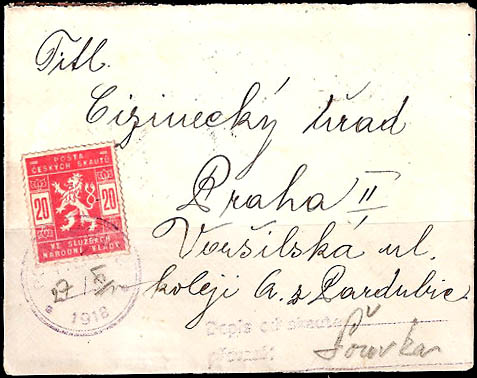 Titl.
Cizinecký úřad
Praha II
Voršilská ul.
kolej A. z Pardubic
POŠTA
ČESKÝCH SKAUTŮ
20 20
VE SLUŽBÁCH
NÁRODNÍ VLÁDY
27 XI
1918
Dopis od skauta